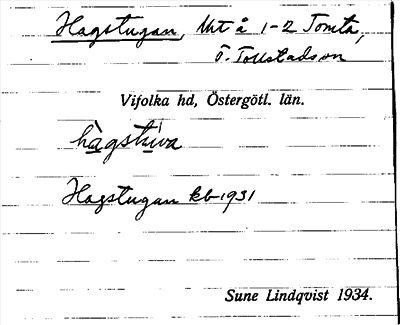 Hagstugan, Unt å 1-2 Tomta,
Ö. Tollstadson
Vifolka hd, Östergötl. län.
hàgstùva
Hagstugan kb 1931
Sune Lindqvist 1934.